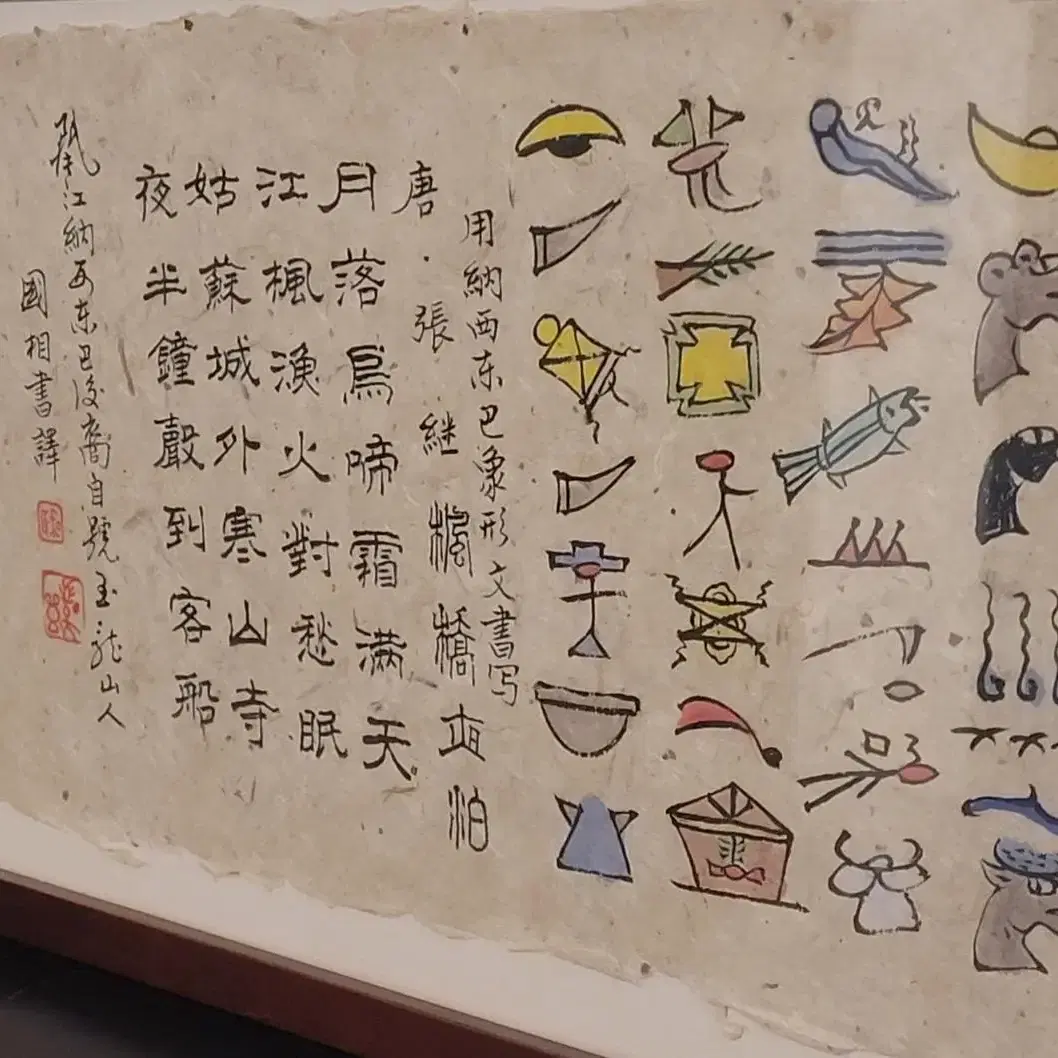 用納西东巴象形文書写
唐·張継 楓橋夜泊
月落烏啼霜满天
江楓漁火對愁眠
姑蘇城外寒山寺
夜半鐘聲到客船
江納西东巴後裔自號玉龍山人
國相書譯